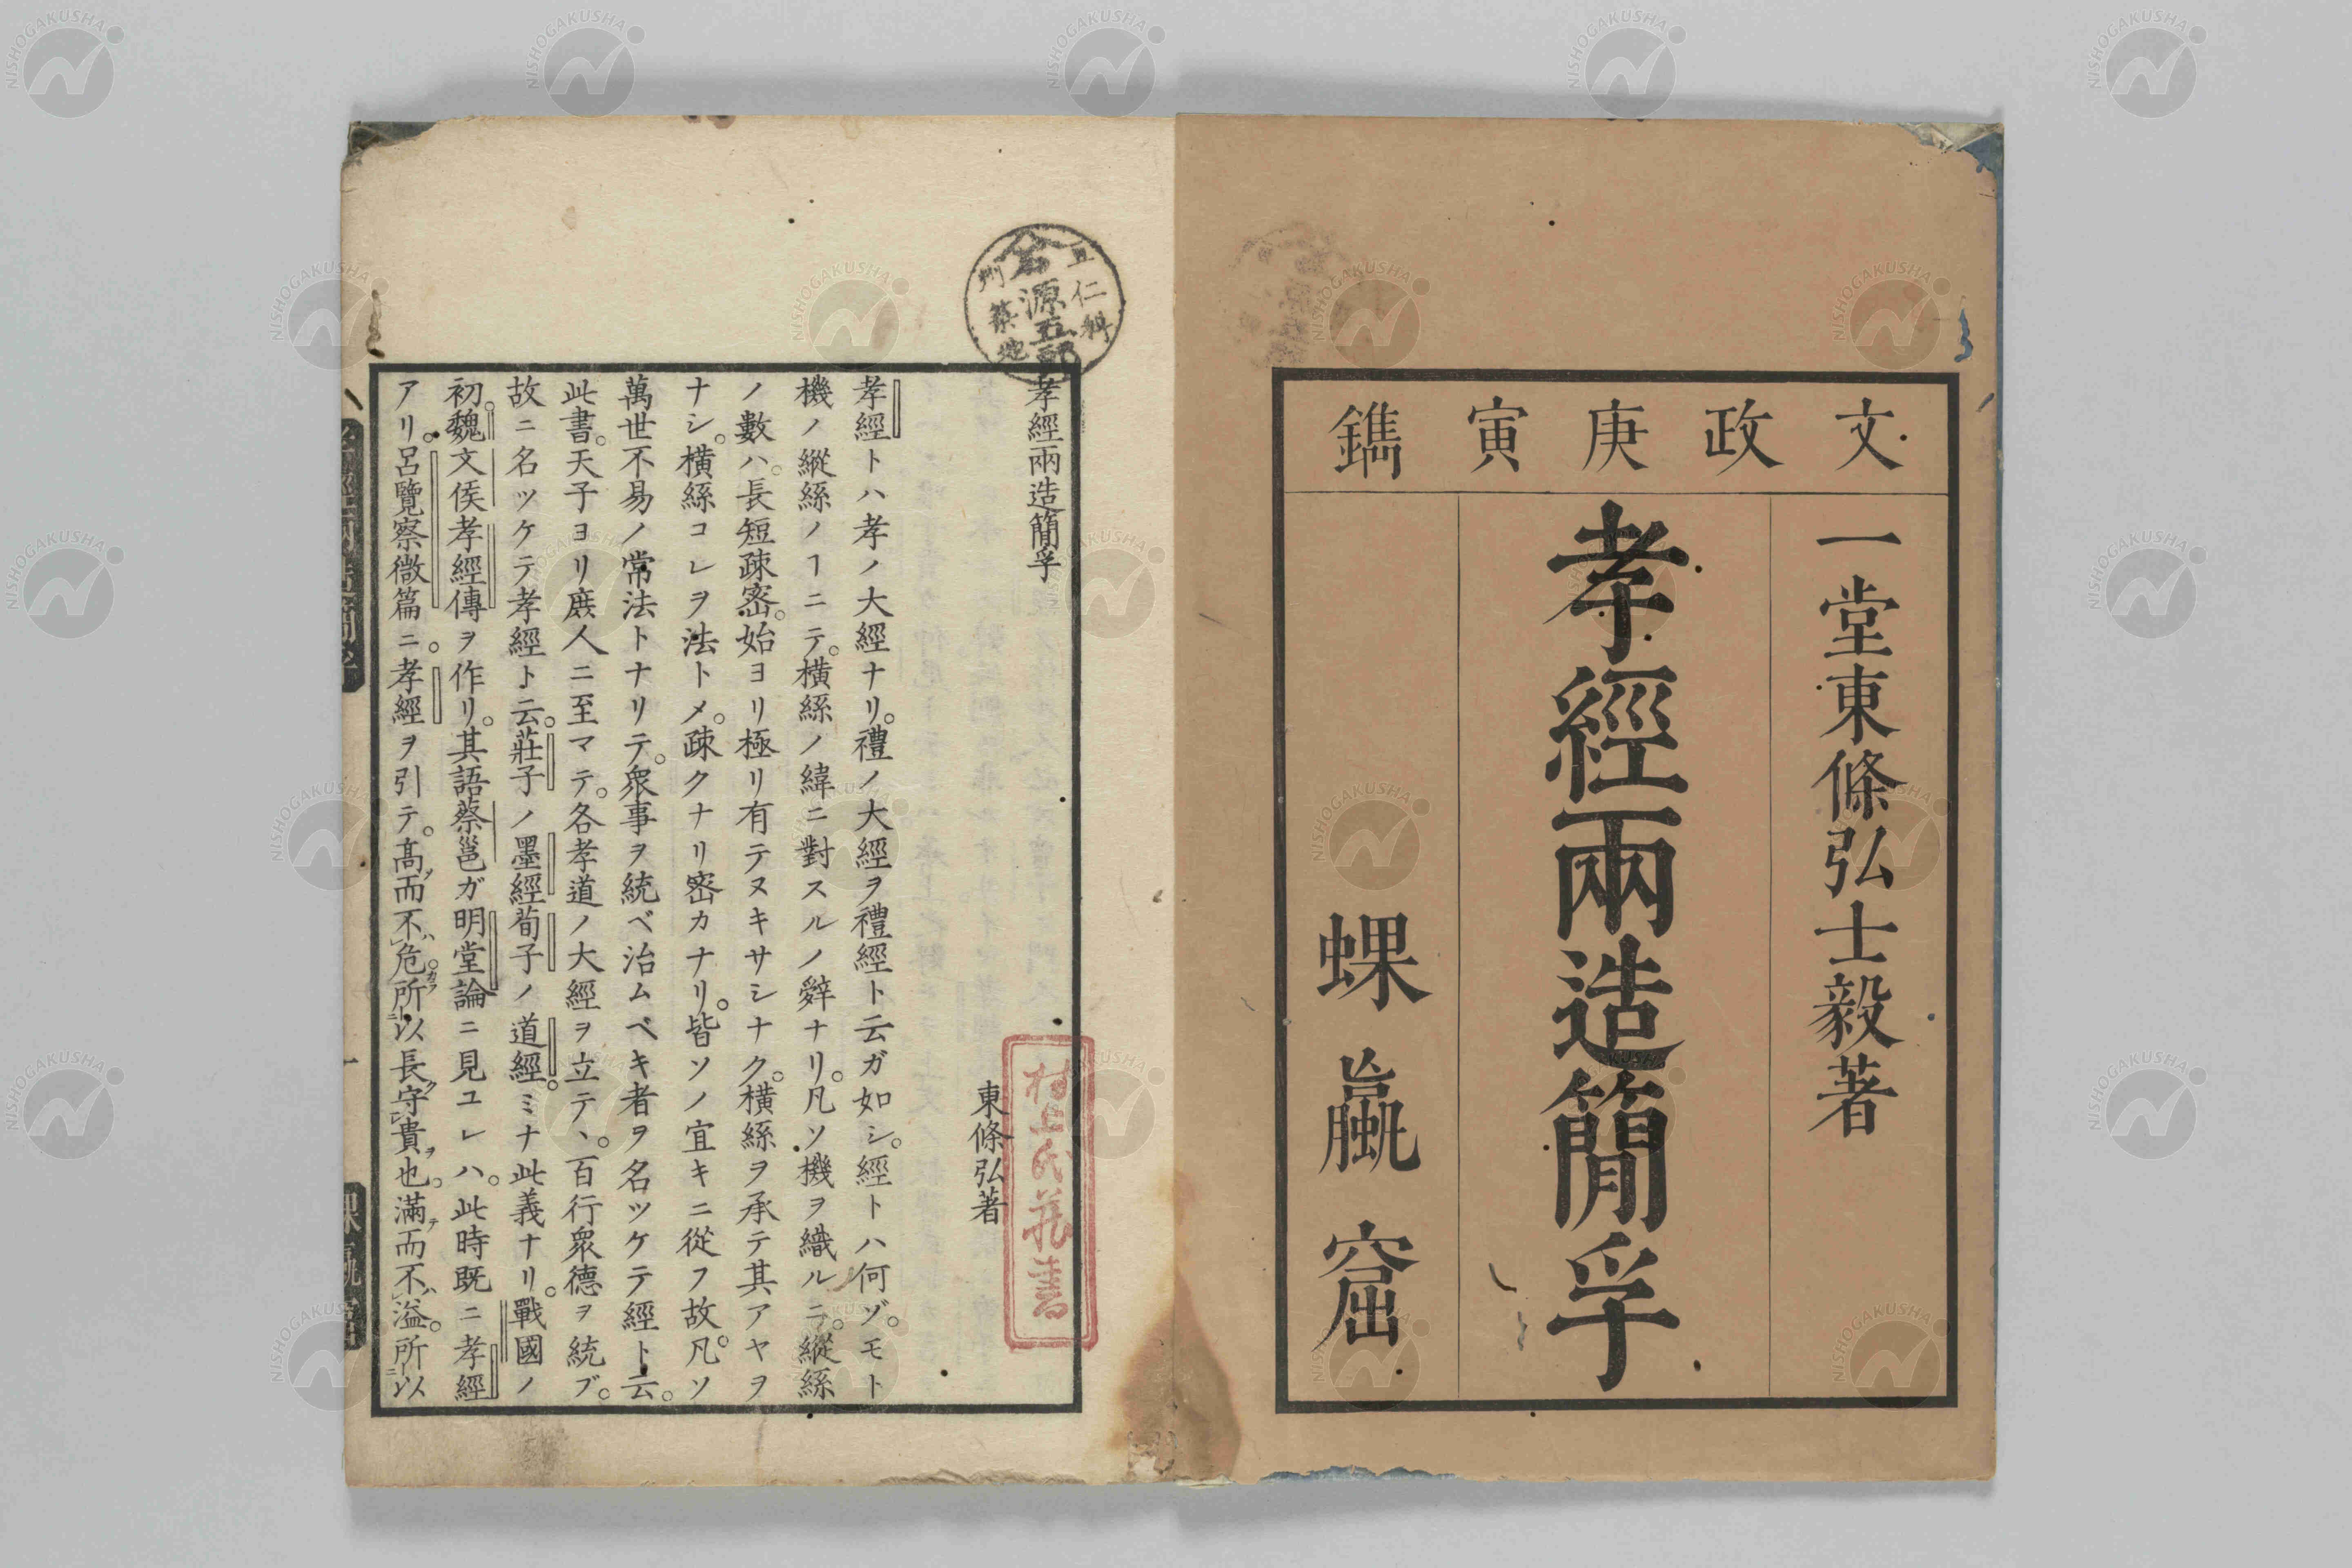 文政庚寅鐫
一堂東條弘士毅著
孝經兩造簡孚
蜾蠃窟
孝經兩造簡孚
東條弘著
孝經トハ孝ノ大經ナリ。禮ノ大經ヲ禮經ト云ガ如シ。經トハ何ゾ。モト
機ノ縱絲ノヿニテ。橫絲ノ緯ニ對スルノ辭ナリ。凡ソ機ヲ織ルニ。縱絲
ノ數ハ。長短疎密。始ヨリ極リ有テヌキサシナク。橫絲ヲ承テ其アヤヲ
ナシ。橫絲コレヲ法トメ。疎クナリ密カナリ。皆ソノ宜キニ從フ故。凡ソ
萬世不易ノ常法トナリテ。衆事ヲ統ベ治ムベキ者ヲ名ツケテ經ト云。
此書。天子ヨリ庶人ニ至マテ。各孝道ノ大經ヲ立テ、。百行衆德ヲ統ブ。
故ニ名ツケテ孝經ト云。莊子ノ墨經荀子ノ道經。ミナ此義ナリ。戰國ノ
初。魏文侯孝經傳ヲ作リ。其語蔡邕ガ明堂論ニ見ユレハ。此時既ニ孝經
アリ。呂覽察微篇ニ。孝經ヲ引テ。高而不危。所以長守貴也。滿而不溢。所以
源五郎
村上氏藏書
NISHOGAKUSHA